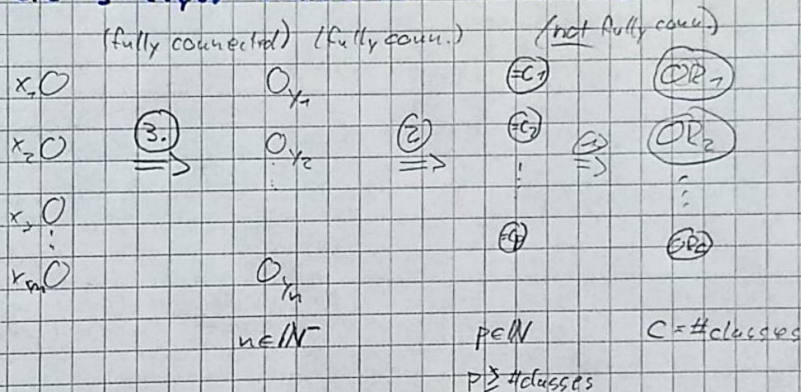 (fully connected) (fully conn.) (not fully conn.)
x₁ O O y₁ =C₁ OR₁
3. ⇒ 2 ⇒ ⇒
x₂ O O y₂ =C₂ OR₂
x₃ O
xₘ O O yₙ =Cₚ ORc
n∈ℕ p∈ℕ C = #classes
p ≥ #classes